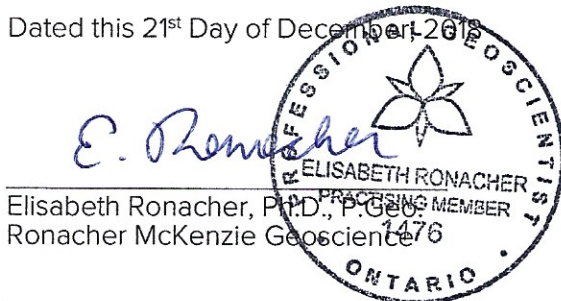 Dated this 21st Day of December, 2018
E. Ronacher
PROFESSIONAL GEOSCIENTIST
ELISABETH RONACHER
PRACTISING MEMBER
1476
ONTARIO
Elisabeth Ronacher, Ph.D., P.Geo.
Ronacher McKenzie Geoscience